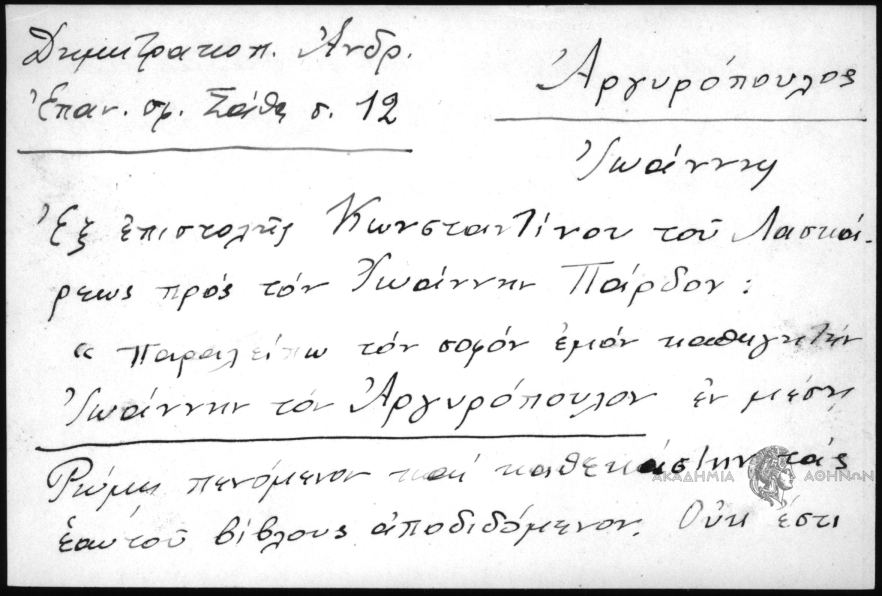 Δημητρακοπ. Ἀνδρ.
Ἐπαν. σφ. Σάθα σ. 12
Ἀργυρόπουλος
Ἰωάννης
Ἐξ ἐπιστολῆς Κωνσταντίνου τοῦ Λασκά-
ρεως πρός τόν Ἰωάννην Πάρδον:
« Παραλείπω τόν σοφόν ἐμόν καθηγητήν
Ἰωάννην τόν Ἀργυρόπουλον ἐν μέσῃ
Ῥώμῃ πενόμενον καί καθεκάστην τάς
ἑαυτοῦ βίβλους ἀποδιδόμενον. Οὐκ ἔστι
ΑΚΑΔΗΜΙΑ ΑΘΗΝΩΝ